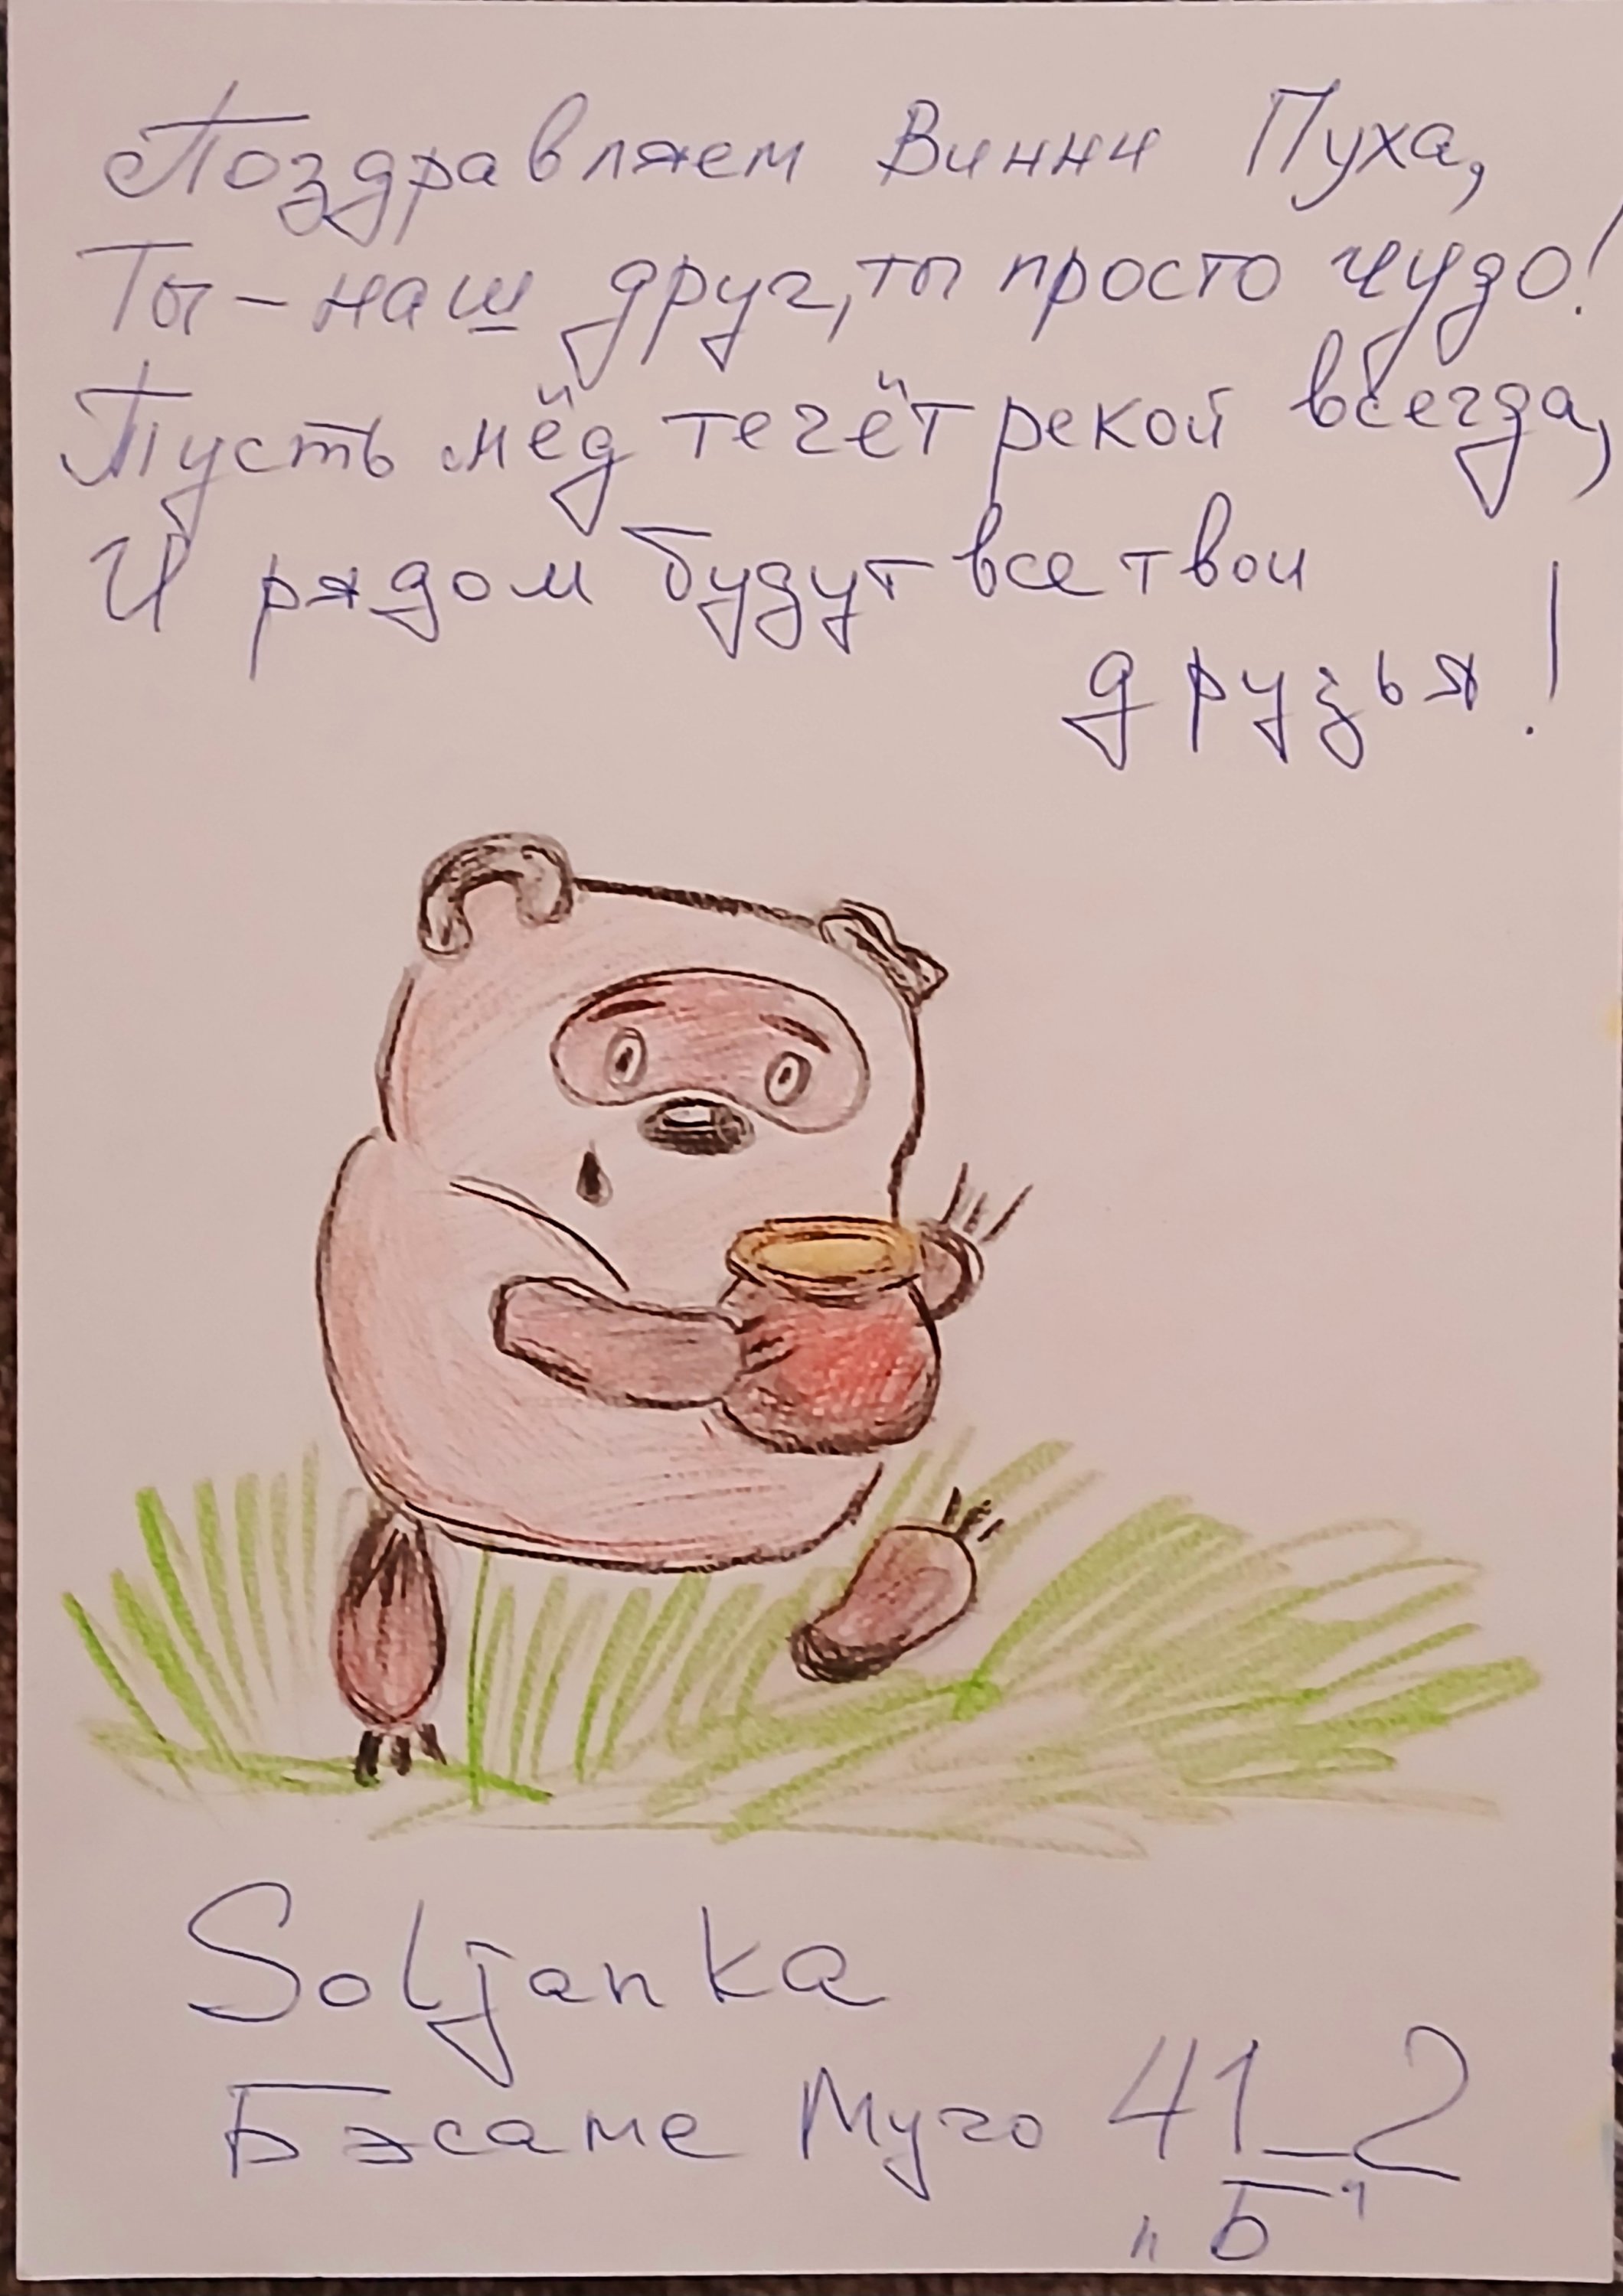 Поздравляем Винни Пуха,
Ты - наш друг, ты просто чудо!
Пусть мёд течёт рекой всегда,
И рядом будут все твои
друзья!
Soljanka
Бэсаме Мучо 41_2
"Б"